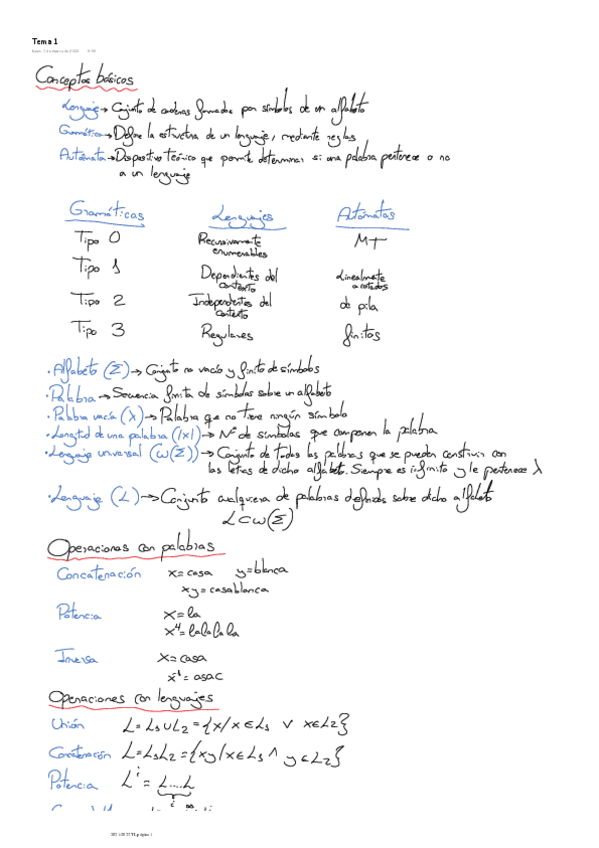 Tema 1
Conceptos básicos
Lenguaje → Conjunto de cadenas formadas por símbolos de un alfabeto
Gramática → Define la estructura de un lenguaje, mediante reglas
Autómata → Dispositivo teórico que permite determinar si una palabra pertenece o no
a un lenguaje
Gramáticas Lenguajes Autómatas
Tipo 0 Recursivamente enumerables MT
Tipo 1 Dependientes del contexto Linealmente acotados
Tipo 2 Independientes del contexto de pila
Tipo 3 Regulares finitos
· Alfabeto (Σ) → Conjunto no vacío y finito de símbolos
· Palabra → Secuencia finita de símbolos sobre un alfabeto
· Palabra vacía (λ) → Palabra que no tiene ningún símbolo
· Longitud de una palabra (|x|) → Nº de símbolos que componen la palabra
· Lenguaje universal (W(Σ)) → Conjunto de todas las palabras que se pueden construir con
las letras de dicho alfabeto. Siempre es infinito y le pertenece λ
· Lenguaje (L) → Conjunto cualquiera de palabras definidas sobre dicho alfabeto
L⊂W(Σ)
Operaciones con palabras
Concatenación x=casa y=blanca
xy=casablanca
Potencia x=la
x⁴=lalalala
Inversa x=casa
x⁻¹=asac
Operaciones con lenguajes
Unión L=L₁∪L₂={x/x∈L₁ ∨ x∈L₂}
Concatenación L=L₁L₂={xy/x∈L₁ ∧ y∈L₂}
Potencia Lⁱ = L....L
i